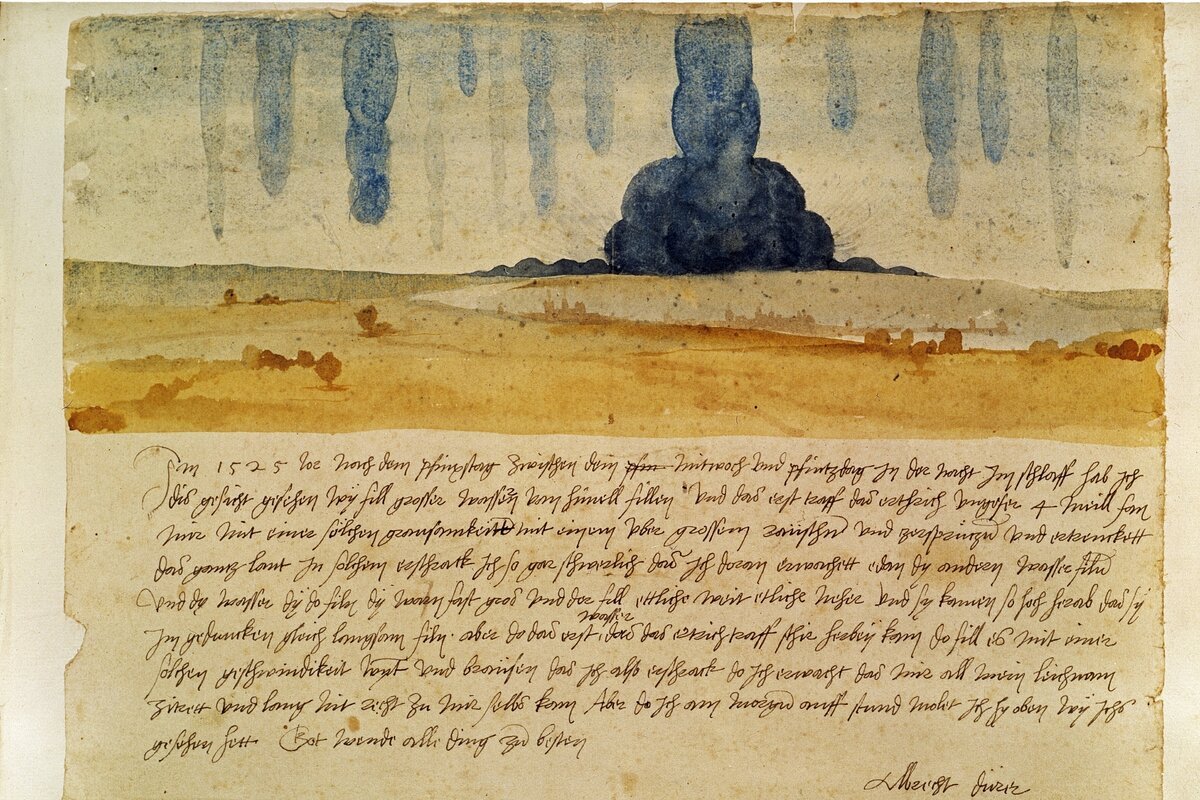 Im 1525 Jor nach dem pfinxstag zwischen dem pfin Mitwoch und pfintzdag in der nacht im schlaff hab ich
dis gesicht gesehen wy fill grosser wassern vom himell fillen und das erst traff das erthrich ungefer 4 meill fan
mir mit einer solchen grausamkeitt mit einem uber grossem raüschn und zersprützn und ertrenckett
das gantz lant In solchem erschrack ich so gar schwerlich das ich doran erwachett edan dy andern wasser filn
und dy wasser dy do filn dy warn fast gros und der fill ettliche weit etliche neher und sy kamen so hoch herab das sy
im gedancken gleich langsam filn. aber do das erst wasser das das ertrich traff schir herbey kam do fill es mit einer
solchen geschwindikeit wynt und braüsen das ich also erschrack do ich erwacht das mir all mein leichnam
zitrett und lang nit recht zu mir selbs kam Aber do ich am morgn auff stund molet ich hy oben wy ichs
gesehen hett Got wende alle ding zu besten
Albrecht dürer